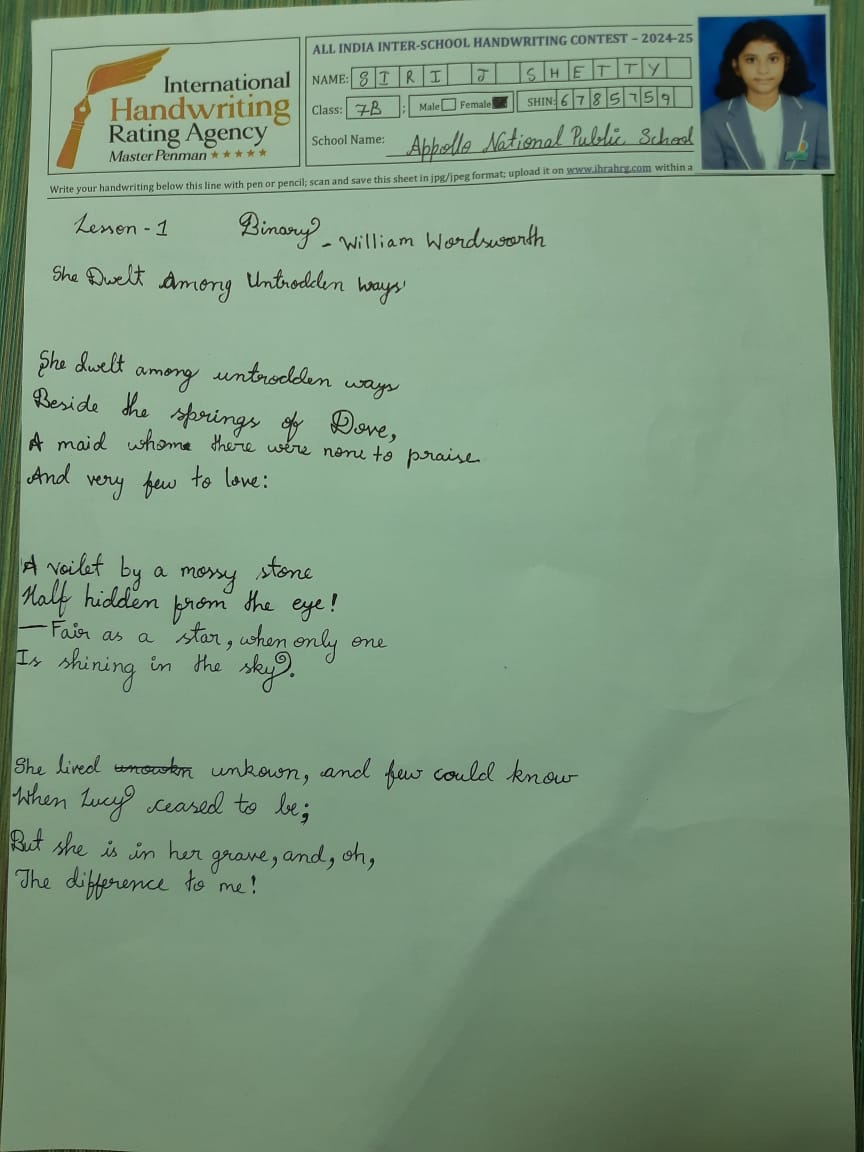 International
Handwriting
Rating Agency
Master Penman ★★★★★
ALL INDIA INTER-SCHOOL HANDWRITING CONTEST – 2024-25
NAME: SIRI J SHETTY
Class: 7B : Male Female SHIN: 6785759
School Name: Appollo National Public School
Write your handwriting below this line with pen or pencil; scan and save this sheet in jpg/jpeg format; upload it on www.ihrahrg.com within a
Lesson - 1 Binary
- William Wordsworth
She Dwelt Among Untrodden ways'
She dwelt among untrodden ways
Beside the springs of Dove,
A maid whome there were none to praise
And very few to love:
A voilet by a mossy stone
Half hidden from the eye!
— Fair as a star, when only one
Is shining in the sky.
She lived unkown, and few could know
When Lucy ceased to be;
But she is in her grave, and, oh,
The difference to me!